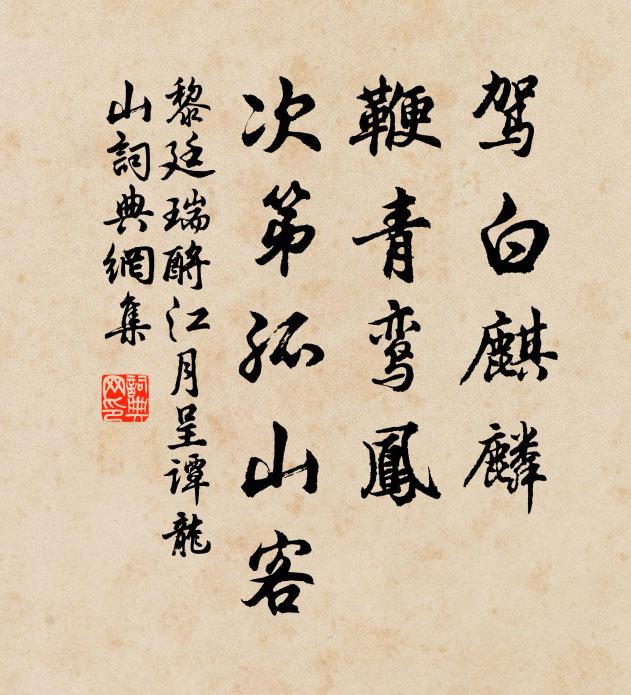 驾白麒麟
鞭青鸾鳳
次第孤山客
黎廷瑞酹江月呈谭龍
山詞典網集
詞典网印